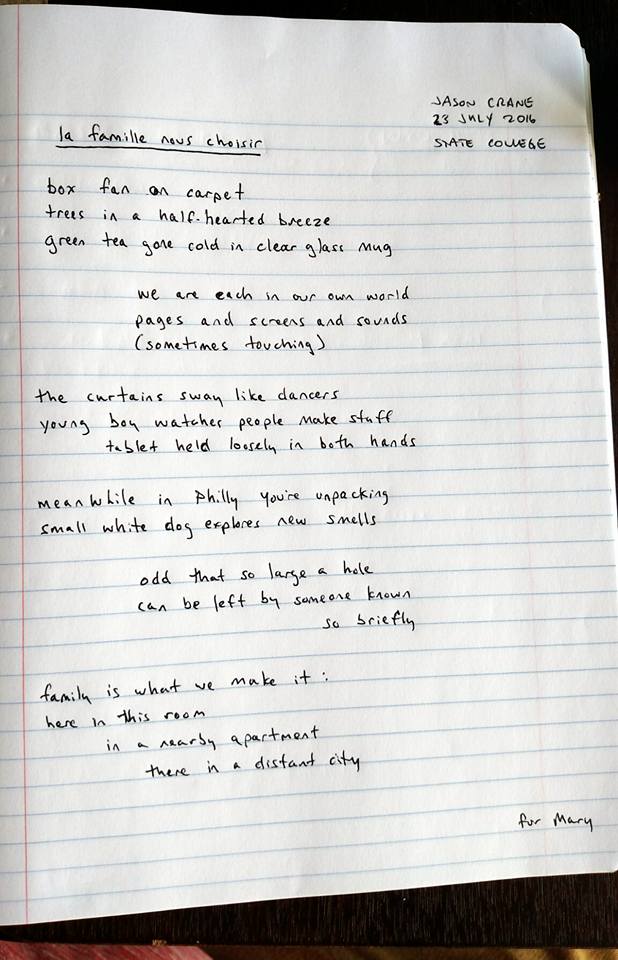 JASON CRANE
23 JULY 2016
STATE COLLEGE
la famille nous choisir
box fan on carpet
trees in a half-hearted breeze
green tea gone cold in clear glass mug
we are each in our own world
pages and screens and sounds
(sometimes touching)
the curtains sway like dancers
young boy watches people make stuff
tablet held loosely in both hands
meanwhile in Philly you're unpacking
small white dog explores new smells
odd that so large a hole
can be left by someone known
so briefly
family is what we make it:
here in this room
in a nearby apartment
there in a distant city
for Mary